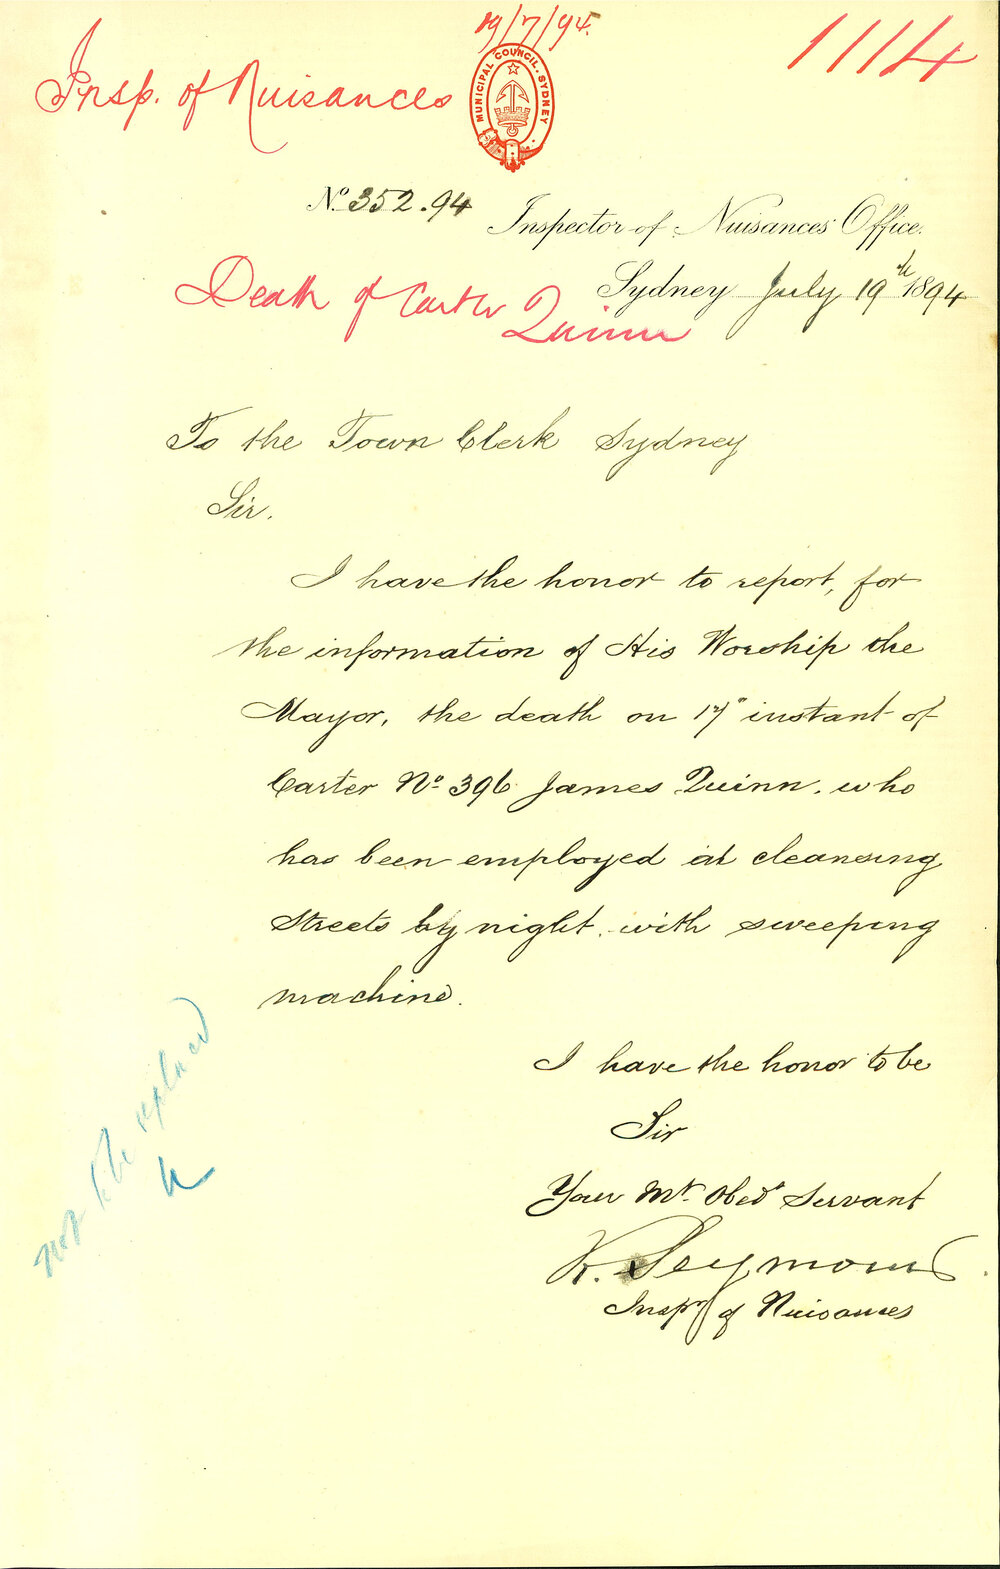 19/7/94.
1114
Insp. of Nuisances
MUNICIPAL COUNCIL. SYDNEY
No. 352.94
Inspector of Nuisances Office.
Sydney July 19th 1894
Death of Carter
Quinn
To the Town Clerk Sydney
Sir.
I have the honor to report, for
the information of His Worship the
Mayor, the death on 17" instant of
Carter No. 396 James Quinn. who
has been employed at cleansing
Streets by night. with sweeping
machine.
I have the honor to be
Sir
Your Mt. Obedt Servant
R. Seymour
Inspr of Nuisances
not to be replaced